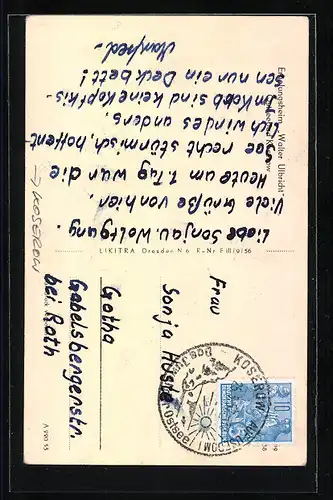 Erholungsheim "Walter Ulbricht"
Liebe Sonja u. Wolfgang.
Viele Grüße von hier.
Heute am 1. Tag war die
See recht stürmisch, hoffent
lich wird es anders.
Im Korb sind keine Kopfkis-
sen nur ein Deckbett!
Manfred -
LIKITRA Dresden N 6 R-Nr F III/9/56
Frau
Sonja
Gotha
Gabelsbergerstr.
bei Roth
→ KOSEROW
A 990 55
KOSEROW AUF USEDOM
10